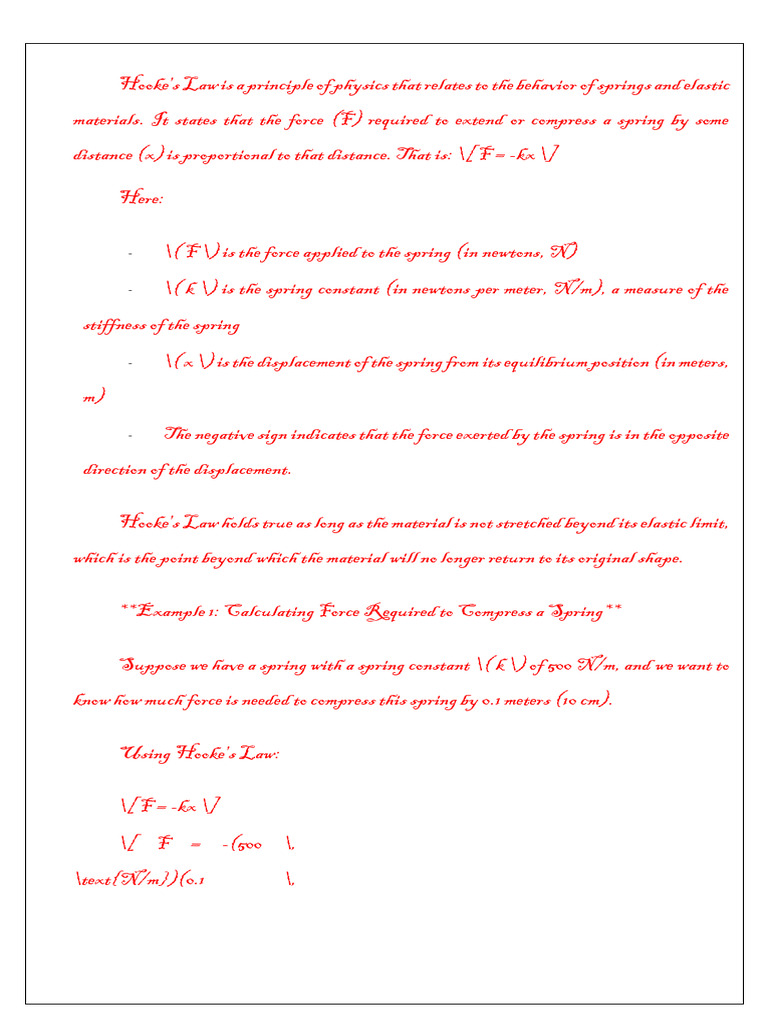 Hooke's Law is a principle of physics that relates to the behavior of springs and elastic
materials. It states that the force (F) required to extend or compress a spring by some
distance (x) is proportional to that distance. That is: \[ F = -kx \]
Here:
- \( F \) is the force applied to the spring (in newtons, N)
- \( k \) is the spring constant (in newtons per meter, N/m), a measure of the
stiffness of the spring
- \( x \) is the displacement of the spring from its equilibrium position (in meters,
m)
- The negative sign indicates that the force exerted by the spring is in the opposite
direction of the displacement.
Hooke's Law holds true as long as the material is not stretched beyond its elastic limit,
which is the point beyond which the material will no longer return to its original shape.
**Example 1: Calculating Force Required to Compress a Spring**
Suppose we have a spring with a spring constant \( k \) of 500 N/m, and we want to
know how much force is needed to compress this spring by 0.1 meters (10 cm).
Using Hooke's Law:
\[ F = -kx \]
\[ F = -(500 \,
\text{N/m})(0.1 \,